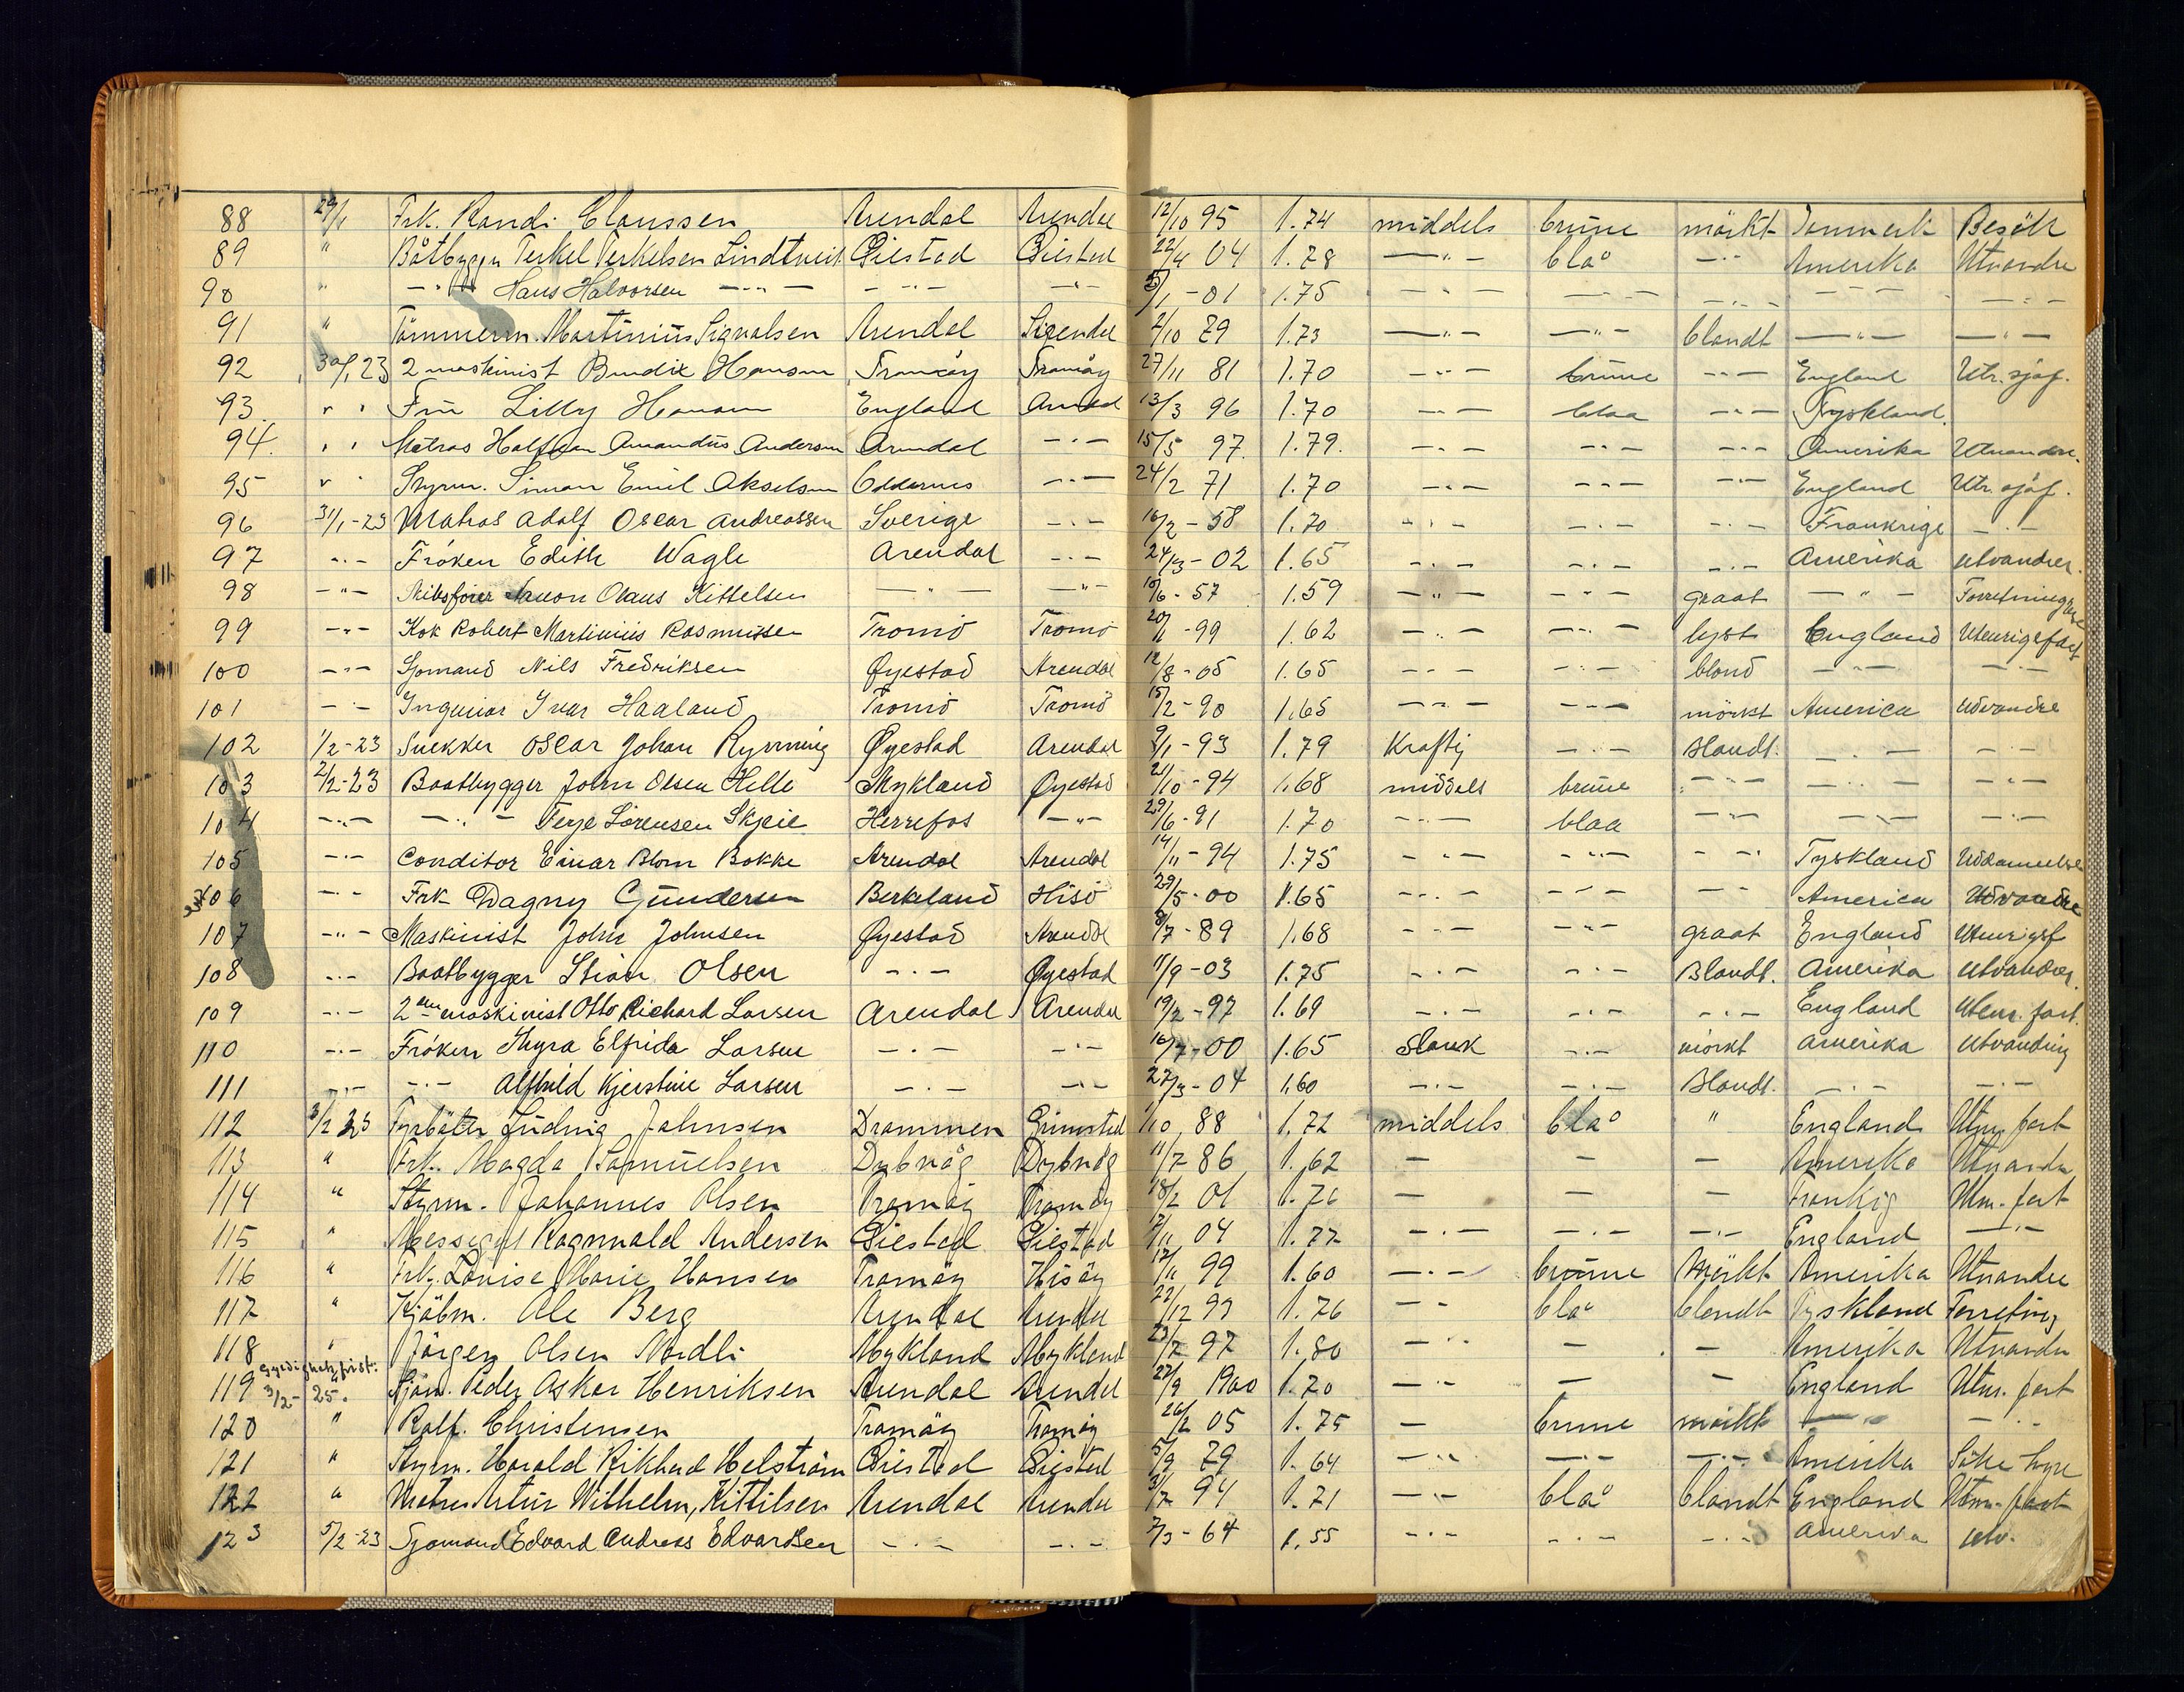 88 29/1 Frk. Randi Claussen Arendal Arendal 12/10 95 1.74 middels brune mörkt Danmark Besök
89 " Båtbygger Terkel Terkelsen Lindtveit Öiestad Öiestad 22/4 04 1.78 —"— blå —"— Amerika Utvandre
90 " —"— Hans Halvorsen —"— —"— —"— 5/1 - 01 1.75 —"— —"— —"— —"— —"—
91 " Tömmerm. Martinius Sigvalsen Arendal Arendal 2/10 79 1.73 —"— —"— blondt —"— —"—
92 30/1 23 2 maskinist Bendix Hansen Tromöy Tromöy 27/11 81 1.70 —"— brune —"— England Utr. sjöf.
93. " " Fru Lilly Hansen England Arendal 13/3 96 1.70 —"— blaa —"— Tyskland.
94. " " Matros Halfdan Amandus Andersen Arendal —"— 15/5 97. 1.79. —"— —"— —"— Amerika Utvandre.
95 " " Styrm. Simon Emil Akselsen Oddernes —"— 24/2 71 1.70 —"— —"— —"— England Utr. sjöf.
96 31/1-23 Matros Adolf Oscar Andreassen Sverige —"— 16/2 - 58 1.70 —"— —"— —"— Frankrige —"—
97 —"— Fröken Edith Wagle Arendal —"— 24/3 - 02 1.65 —"— —"— —"— Amerika utvandrer.
98 —"— Skibsförer Olaus Kittelsen —"— —"— 10/6 - 57 1.59 —"— —"— graat —"—
99 —"— Kok Robert Martinius Rasmussen Tromö Tromö 20/11 - 99 1.62 —"— —"— lyst England Utenrigsfart
100 —"— Sjömand Nils Fredriksen Øyestad Arendal 12/8 - 05 1.65 —"— —"— blond —"— —"—
101 —"— Ingeniør Ivar Haaland Tromö Tromö 15/2 - 90 1.65 —"— —"— mörkt America Udvandre
102 1/2-23 Snekker Oscar Johan Ryvning Øyestad Arendal 9/1 - 93 1.79 Kraftig —"— Blondt. —"— —"—
103 2/2-23 Baatbygger John Olsen Helle Mykland Øyestad 21/10 - 94 1.68 middels brune —"— —"— —"—
104 —"— —"— Terje Lörensen Skjeie Herrefos —"— 29/6 - 91 1.70 —"— blaa —"— —"— —"—
105 —"— Conditor Einar Blom Bakke Arendal Arendal 14/11 - 94 1.75 —"— —"— —"— Tyskland Uddannelse
106 —"— Frk Dagny Gundersen Birkeland Hisö 29/5 - 00 1.65 —"— —"— —"— America Udvandre
107 —"— Maskinist John Johnsen Øyestad Arendal 8/7 - 89 1.68 —"— —"— graat England Utenrigsf
108 —"— Baatbygger Stian Olsen —"— Øyestad 11/9 - 03 1.75 —"— —"— Blondt. Amerika utvandrer.
109 —"— 2en maskinist Otto Richard Larsen Arendal Arendal 19/2 - 97 1.69 —"— —"— —"— England Utenr. fart.
110 —"— Fröken Thyra Elfrida Larsen —"— —"— 16/7 - 00 1.65 Slank —"— mörkt Amerika utvandring
111 —"— —"— Alfhild Kjerstine Larsen —"— —"— 27/3 - 04 1.60 —"— —"— Blondt. —"— —"—
112 3/2 23 Fyrböter Ludvig Johnsen Drammen Grimstad 1/10 88 1.72 middels blå " England Utenr. fart
113 " Frk. Magda Samuelsen Dybvåg Dybvåg 11/7 86 1.62 — — — Amerika Utvandre
114 " Styrm. Johannes Olsen Tromöy Tromöy 18/2 01 1.76 — — — Frankrig Utenr. fart
115 " Messegut Ragnvald Andersen Öiestad Öiestad 7/11 04 1.77 —"— —"— —"— England —"—
116 " Frk. Lovise Marie Hansen Tromöy Hisöy 17/11 99 1.60 —"— brune Mörkt Amerika Utvandre
117 " Kjöbm. Ole Berg Arendal Arendal 22/12 99 1.76 —"— blå blondt Tyskland Forretning
118 " Jörgen Olsen Nordli Mykland Mykland 23/7 97 1.80 —"— — — Amerika Utvandre
Gyldighetsfrist:
119 3/2-25. Sjöm. Peder Oskar Henriksen Arendal Arendal 22/9 1900 1.70 —"— — — England Utenr. fart
120 " Rolf. Christensen Tromöy Tromöy 26/2 05 1.75 — brune mörkt —"— —"—
121 " Styrm. Harald Rikhard Helström Öiestad Öiestad 5/9 79 1.64 —"— —"— —"— Amerika Söke hyre
122 " Matros Artur Wilhelm, Kittilsen Arendal Arendal 31/7 94 1.71 —"— blå blondt England Utenr. fart
123 5/2-23 Sjömand Edvard Andreas Edvardsen —"— —"— 7/3 - 64 1.55 —"— —"— —"— Amerika utv.